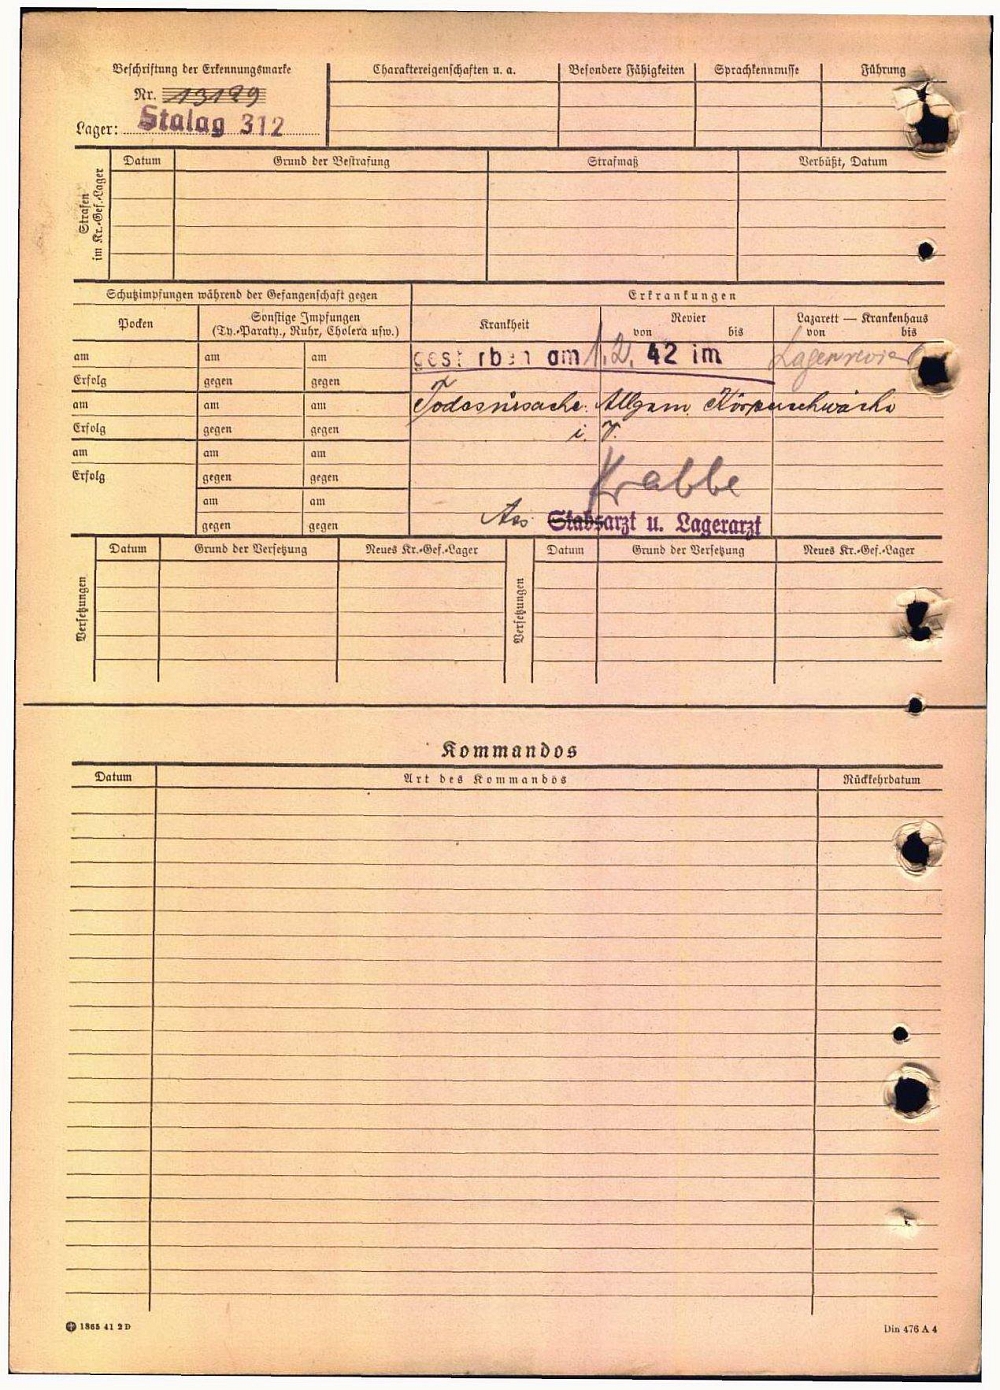 Beschriftung der Erkennungsmarke
Nr. 13199
Lager: Stalag 312
Charaktereigenschaften u. a.
Besondere Fähigkeiten
Sprachkenntnisse
Führung
Strafen im Kr.-Gef.-Lager
Datum
Grund der Bestrafung
Strafmaß
Verbüßt, Datum
Schutzimpfungen während der Gefangenschaft gegen
Erkrankungen
Pocken
Sonstige Impfungen
(Ty.-Paraty., Ruhr, Cholera usw.)
Krankheit
Revier
von bis
Lazarett — Krankenhaus
von bis
am am am
gest rben am 1.2. 42 im Lagerrevier
Erfolg gegen gegen
am am am
Todesursache: Allgem. Körperschwäche
Erfolg gegen gegen
i. V.
am am am
Erfolg gegen gegen
Krabbe
am am
Ass Stabsarzt u. Lagerarzt
gegen gegen
Versetzungen
Datum
Grund der Versetzung
Neues Kr.-Gef.-Lager
Versetzungen
Datum
Grund der Versetzung
Neues Kr.-Gef.-Lager
Kommandos
Datum
Art des Kommandos
Rückkehrdatum
1865 41 2 D
Din 476 A 4